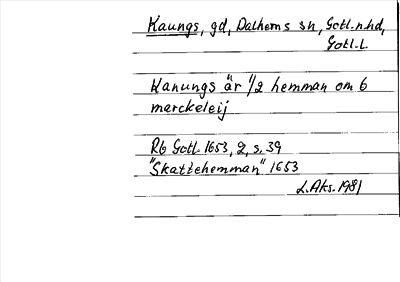 Kaungs, gd, Dalhems sn, Gotl. n. hd,
Gotl. L.
Kanungs är 1/2 hemman om 6
marckeleij
Rb Gotl. 1653, 2, s. 39
"Skattehemman" 1653
L. Aks. 1981